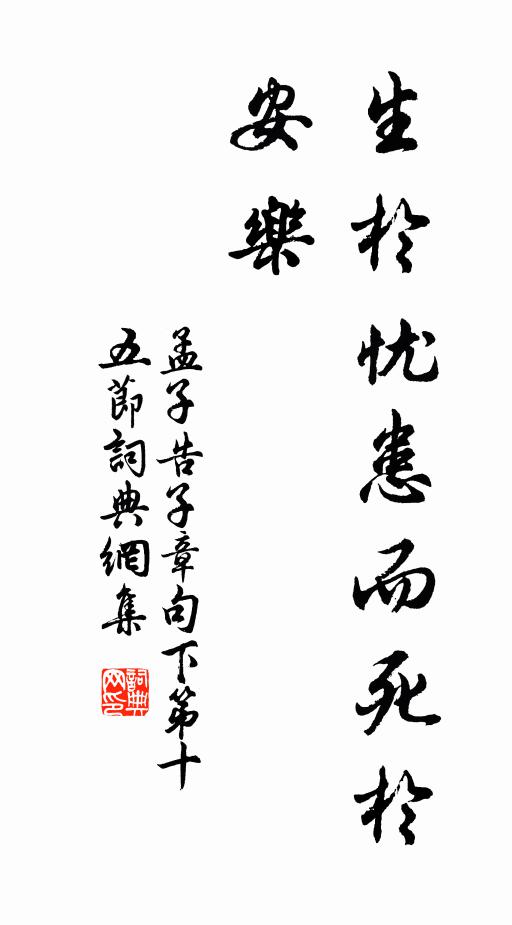 生於忧患而死於
安樂
孟子告子章句下第十
五節詞典網集
詞典
网印